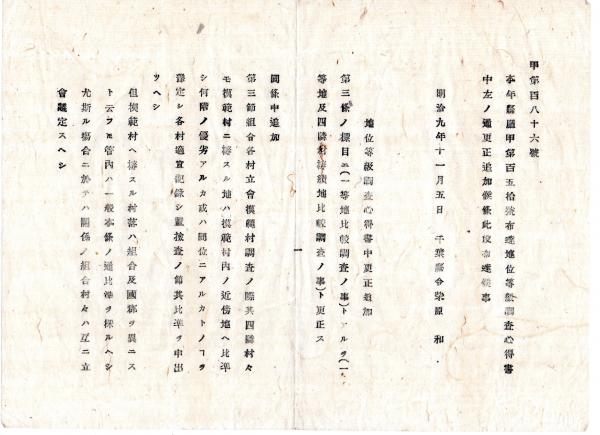 甲第百八十六號
本年縣廳甲第百五拾號布達地位等級調査心得書
中左ノ通更正追加候條此段布達候事
明治九年十一月五日　千葉縣令柴原　和
地位等級調査心得書中更正追加
第三條ノ標目ニ(一等地比較調査ノ事)トアルヲ(一
等地及四隣村接續地比較調査ノ事)ト更正ス
一
同條中追加
第三節組合各村立會模範村調査ノ際其四隣村々
モ模範村ニ接スル地ハ模範村内ノ近傍地ヘ比準
シ何階ノ優劣アルカ或ハ同位ニアルカトノヿヲ
豫定シ各村適宜記錄シ置檢査ノ節其比準ヲ申出
ツヘシ
但模範村ヘ接スル村落ハ組合及國郷ヲ異ニス
ト云フヒ管内ハ一般本條ノ通比準ヲ採ルヘシ
尤斯ル場合ニ於テハ關係ノ組合村々ハ互ニ立
會議定スヘシ